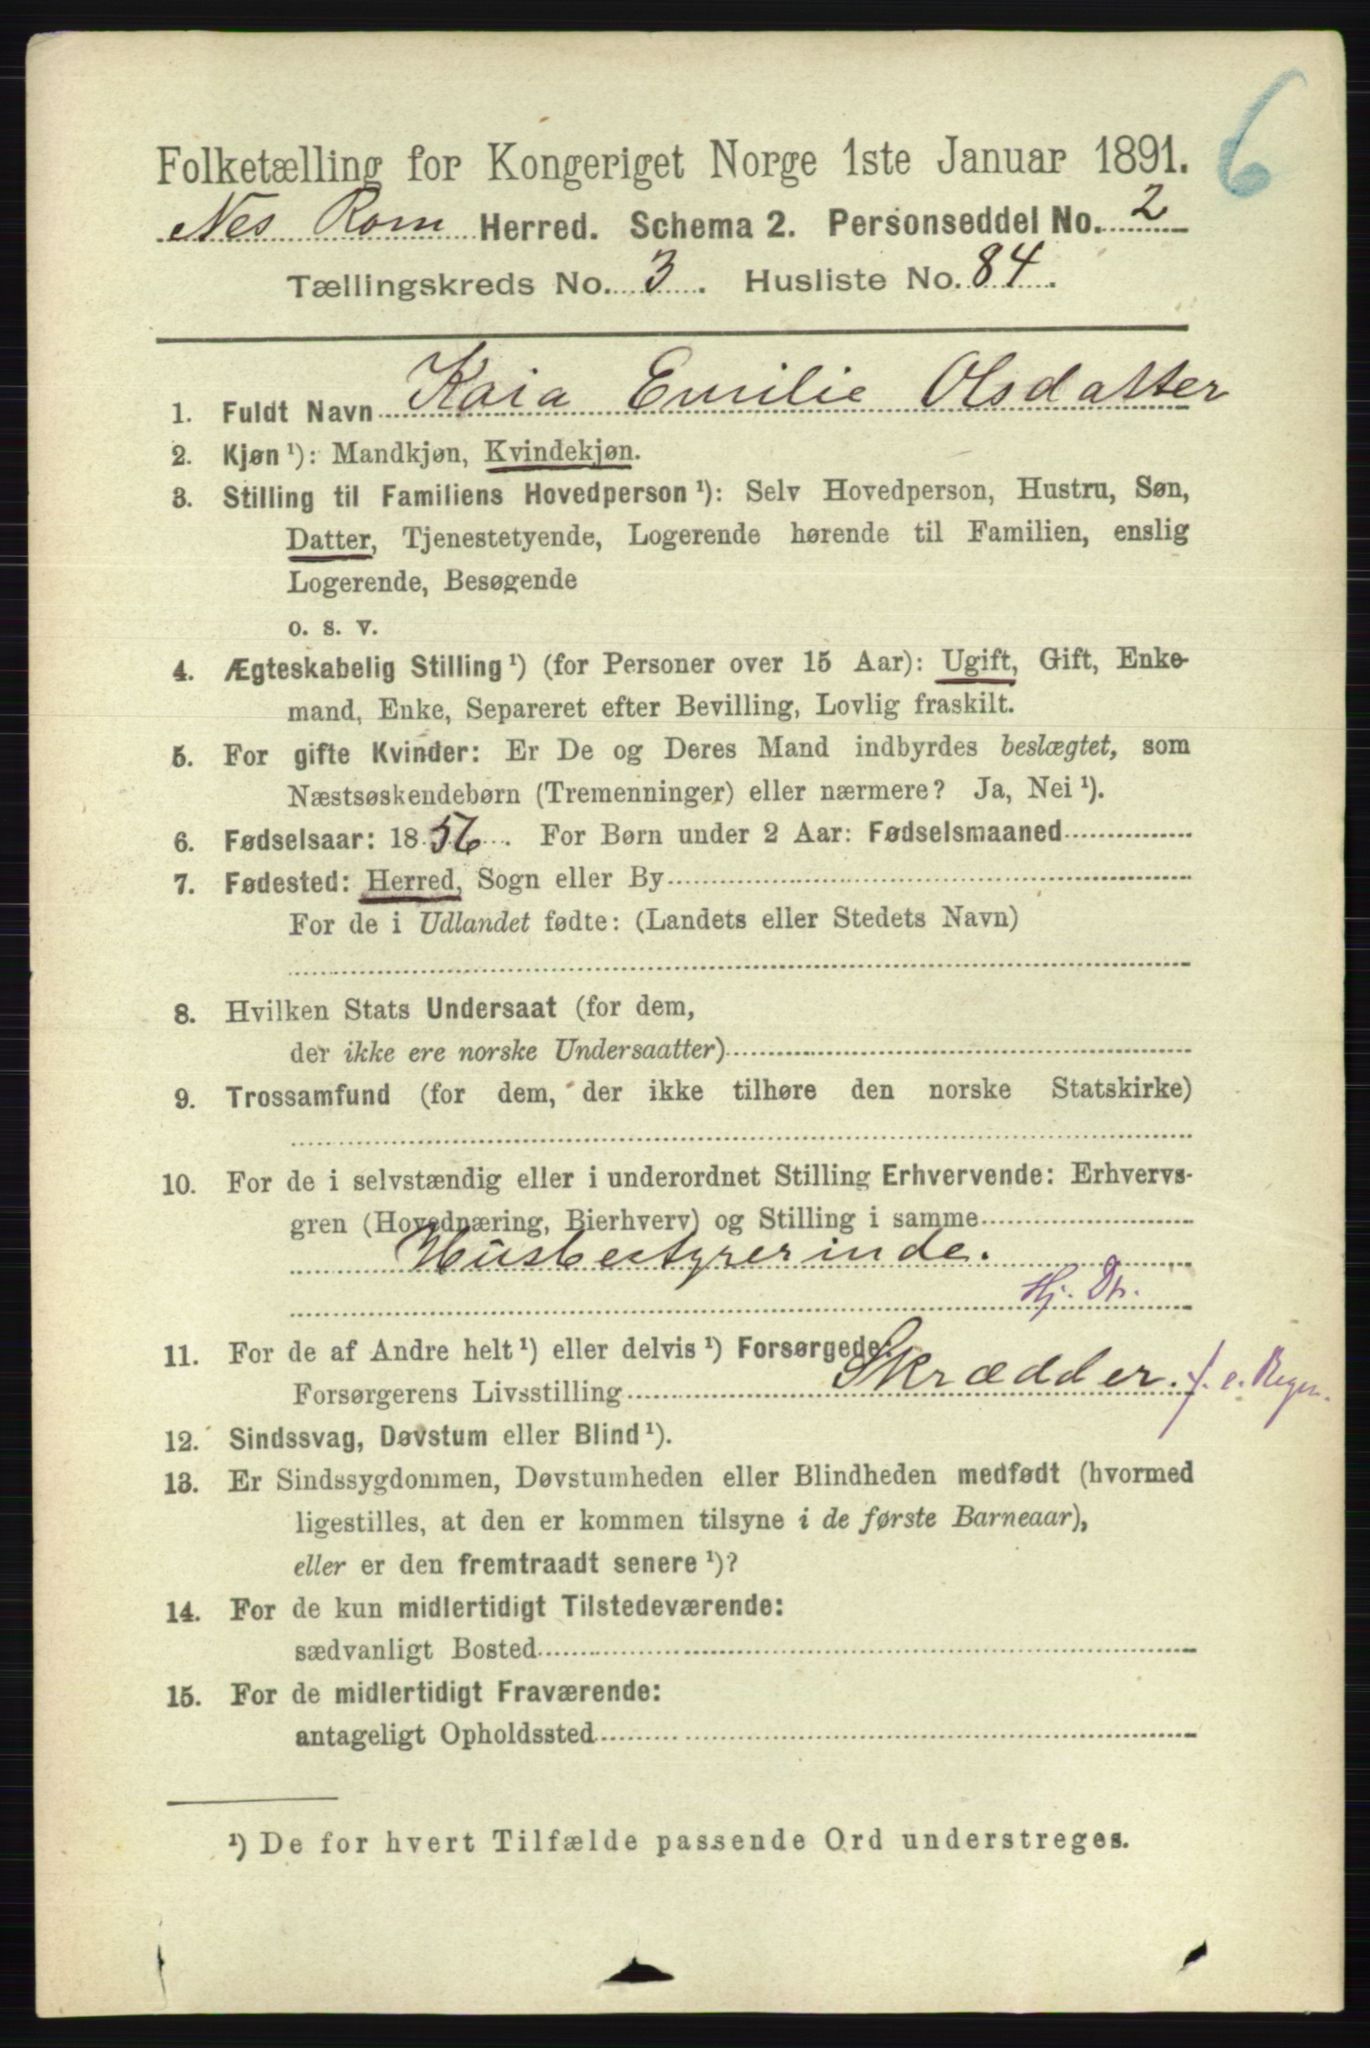 6
Folketælling for Kongeriget Norge 1ste Januar 1891.
Nes Rom Herred. Schema 2. Personseddel No. 2
Tællingskreds No. 3. Husliste No. 84.
1. Fuldt Navn Kaia Emilie Olsdatter
2. Kjøn ¹): Mandkjøn, Kvindekjøn.
3. Stilling til Familiens Hovedperson ¹): Selv Hovedperson, Hustru, Søn,
Datter, Tjenestetyende, Logerende hørende til Familien, enslig
Logerende, Besøgende
o. s. v.
4. Ægteskabelig Stilling ¹) (for Personer over 15 Aar): Ugift, Gift, Enke-
mand, Enke, Separeret efter Bevilling, Lovlig fraskilt.
5. For gifte Kvinder: Er De og Deres Mand indbyrdes beslægtet, som
Næstsøskendebørn (Tremenninger) eller nærmere? Ja, Nei ¹).
6. Fødselsaar: 1856. For Børn under 2 Aar: Fødselsmaaned
7. Fødested: Herred, Sogn eller By
For de i Udlandet fødte: (Landets eller Stedets Navn)
8. Hvilken Stats Undersaat (for dem,
der ikke ere norske Undersaatter)
9. Trossamfund (for dem, der ikke tilhøre den norske Statskirke)
10. For de i selvstændig eller i underordnet Stilling Erhvervende: Erhvervs-
gren (Hovednæring, Bierhverv) og Stilling i samme
Husbestyrerinde.
Hj. Dtr.
11. For de af Andre helt ¹) eller delvis ¹) Forsørgede:
Forsørgerens Livsstilling Skrædder. f. e. Regn.
12. Sindssvag, Døvstum eller Blind ¹).
13. Er Sindssygdommen, Døvstumheden eller Blindheden medfødt (hvormed
ligestilles, at den er kommen tilsyne i de første Barneaar),
eller er den fremtraadt senere ¹)?
14. For de kun midlertidigt Tilstedeværende:
sædvanligt Bosted
15. For de midlertidigt Fraværende:
antageligt Opholdssted
¹) De for hvert Tilfælde passende Ord understreges.